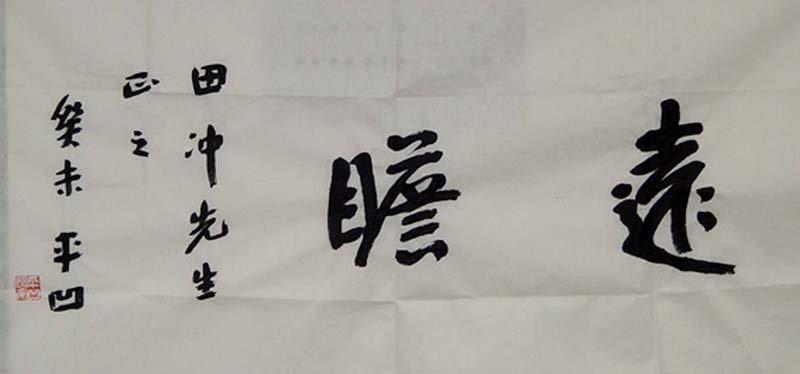 遠瞻
田冲先生
正之
癸未 平凹